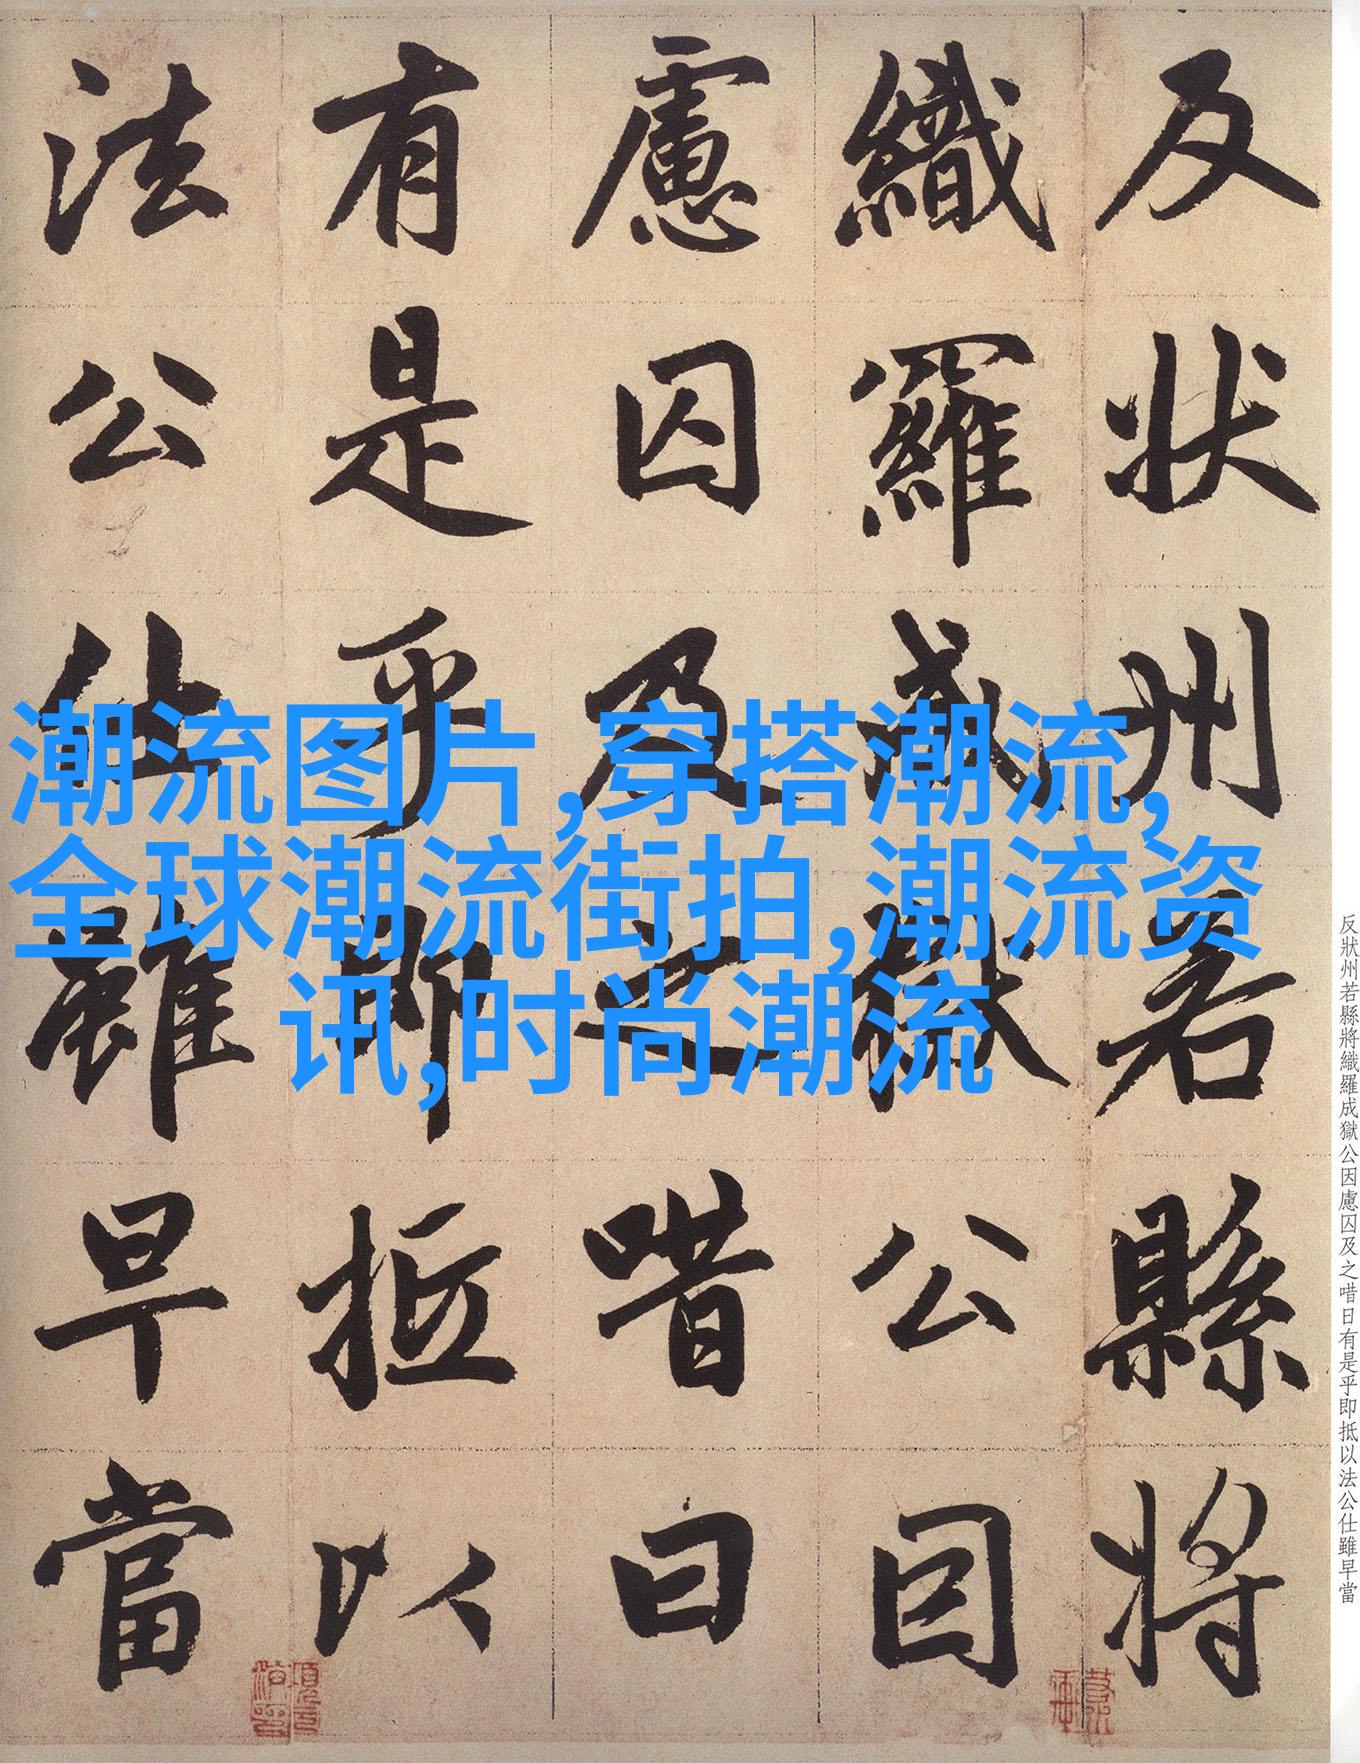 潮流图片,穿搭潮流,
全球潮流街拍,潮流资
讯,时尚潮流
反状州若縣將
織羅成獄公因
慮囚及之唶曰
有是乎即抵以
法公仕雖早當
反狀州若縣將織羅成獄公因慮囚及之唶日有是乎即抵以法公仕雖早當